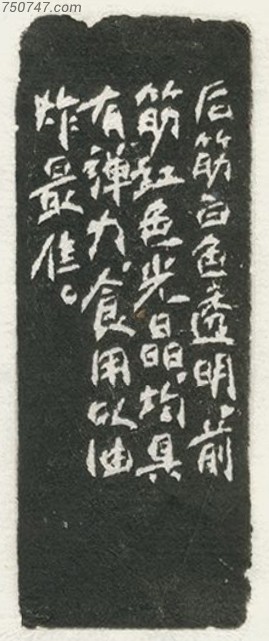 750747.com
后筋白色透明、前
筋红色光晶、均具
有弹力、食用以油
炸最佳。